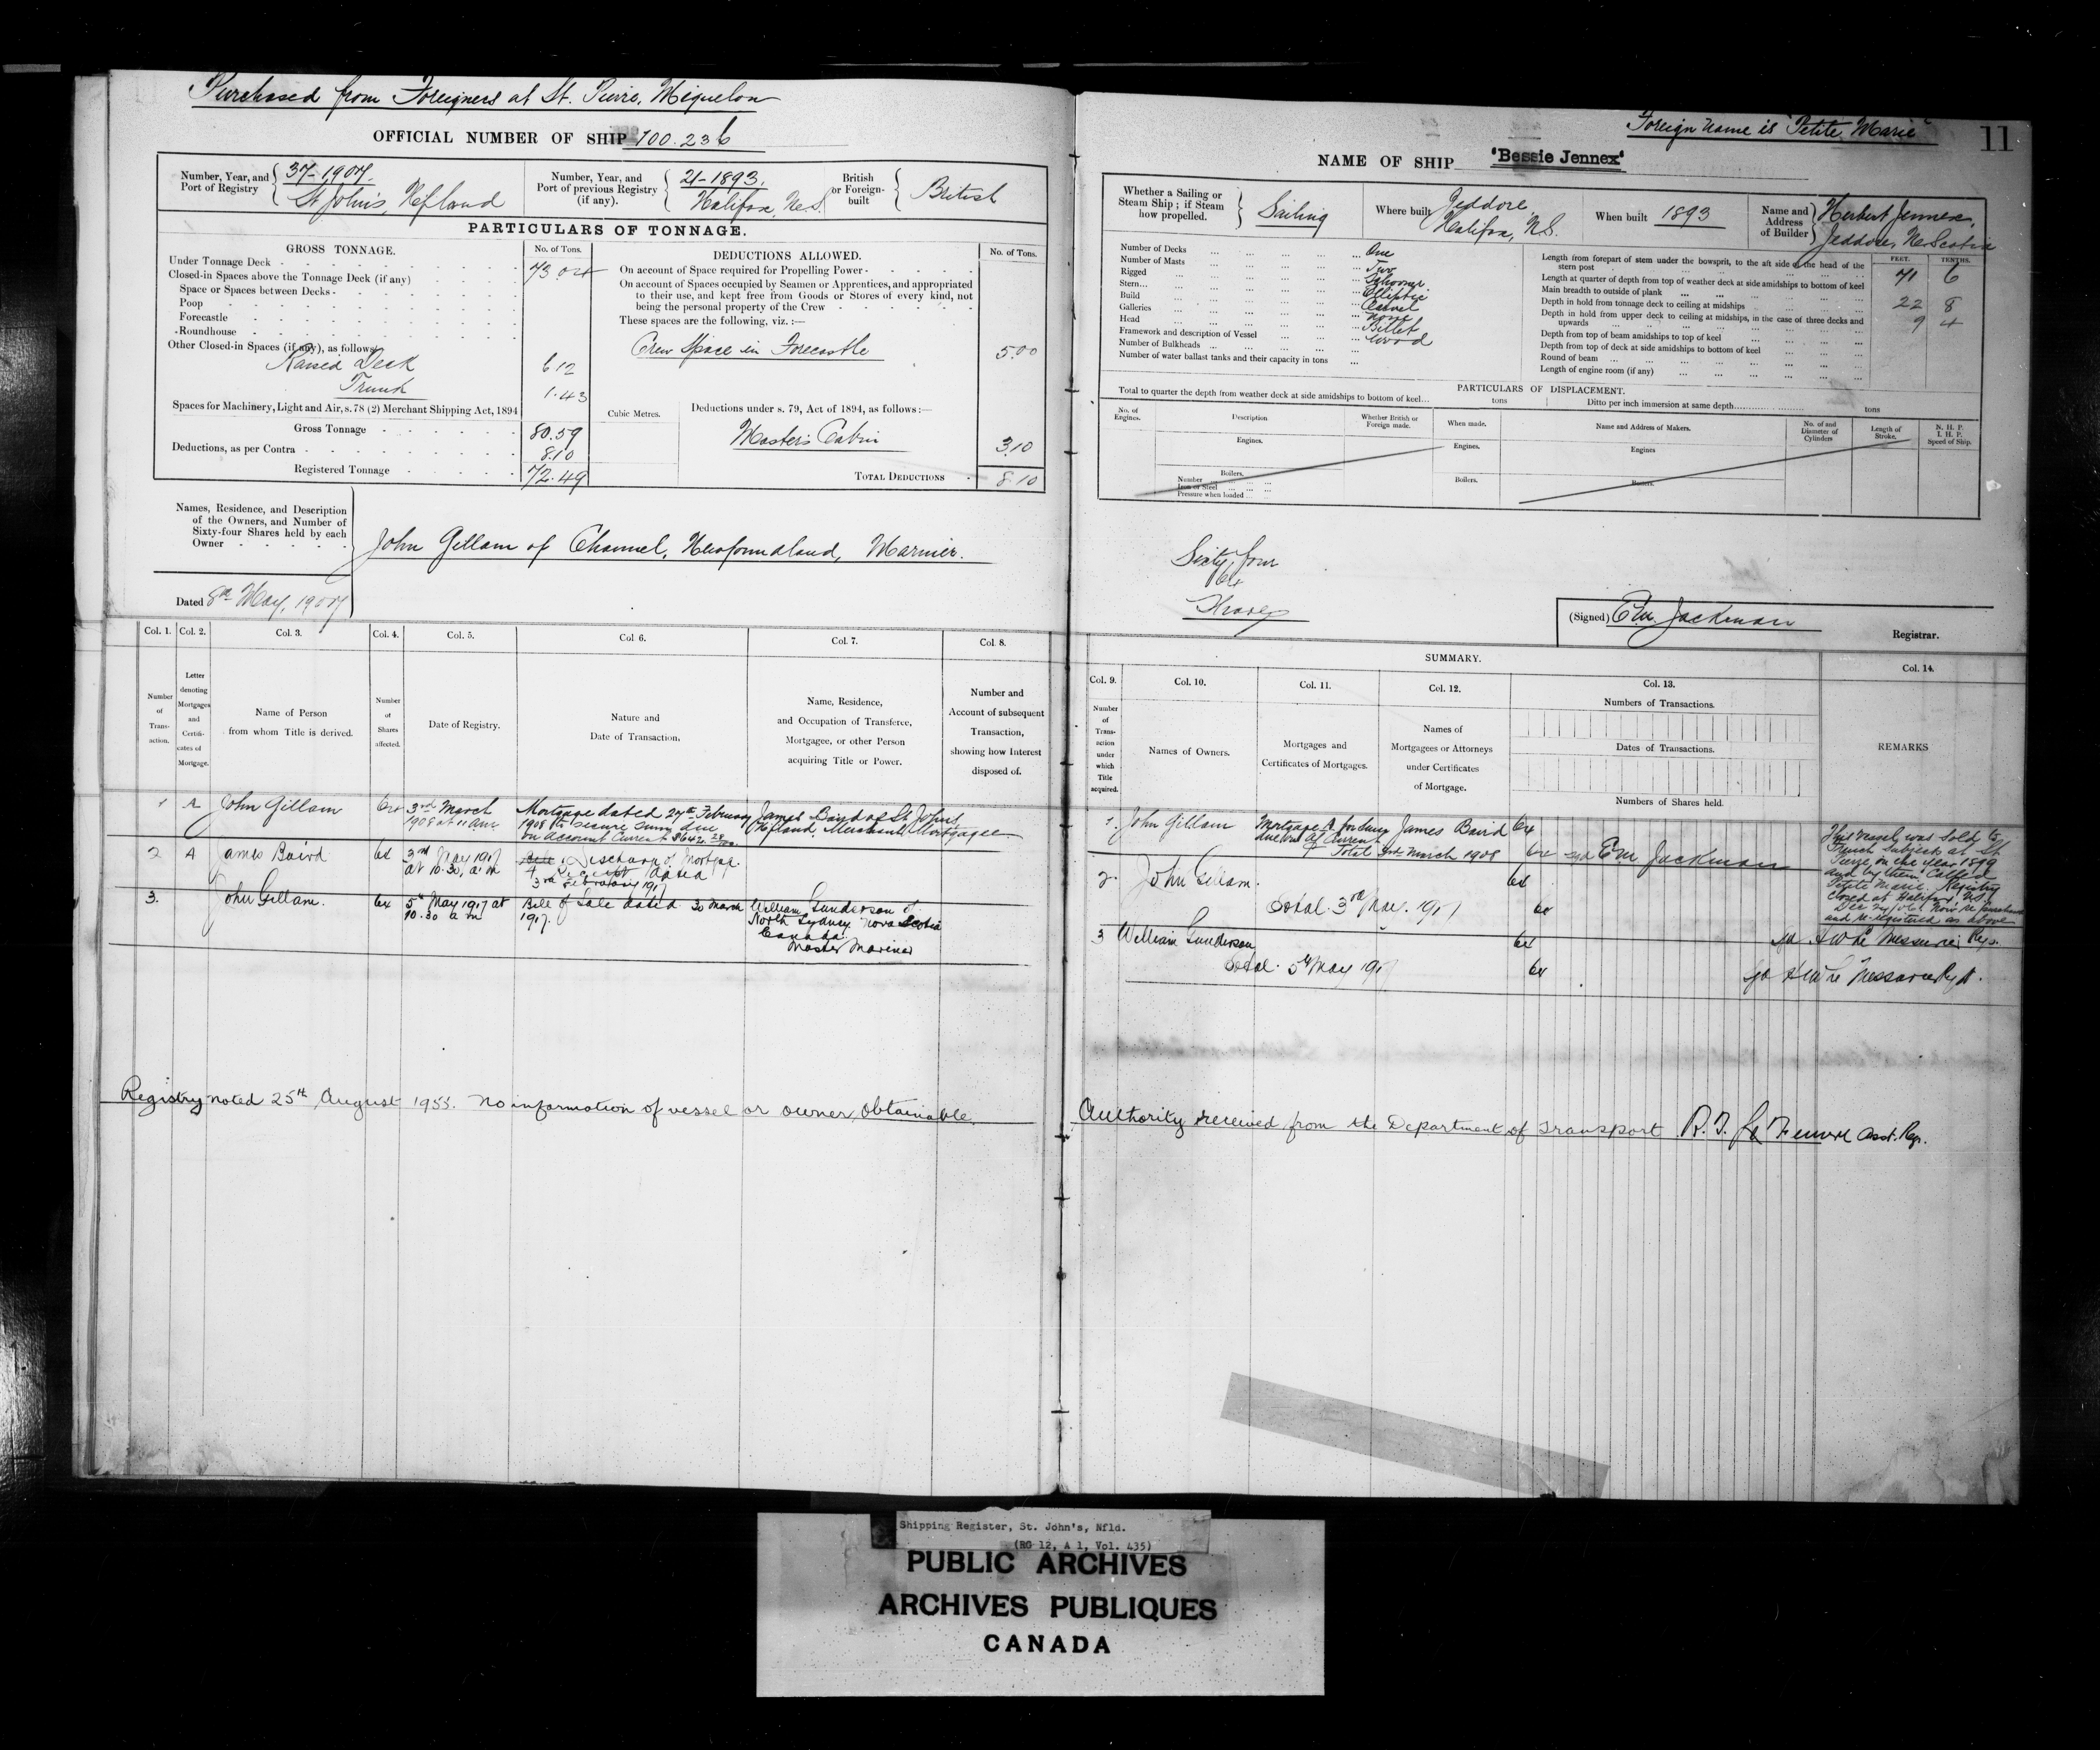 Purchased from Foreigners at St. Pierre, Miquelon
OFFICIAL NUMBER OF SHIP 100.236
Number, Year, and Port of Registry
37-1907.
St John's, Nfland
Number, Year, and Port of previous Registry (if any).
21-1893.
Halifax, N.S.
British or Foreign-built
British
PARTICULARS OF TONNAGE.
GROSS TONNAGE.
No. of Tons.
Under Tonnage Deck
73.04
Closed-in Spaces above the Tonnage Deck (if any)
Space or Spaces between Decks
Poop
Forecastle
Roundhouse
Other Closed-in Spaces (if any), as follows
Raised Deck
6 12
Trunk
1.43
Spaces for Machinery, Light and Air, s. 78 (2) Merchant Shipping Act, 1894
Gross Tonnage
80.59
Deductions, as per Contra
8.10
Registered Tonnage
72.49
DEDUCTIONS ALLOWED.
No. of Tons.
On account of Space required for Propelling Power
On account of Spaces occupied by Seamen or Apprentices, and appropriated
to their use, and kept free from Goods or Stores of every kind, not
being the personal property of the Crew
These spaces are the following, viz. :—
Crew Space in Forecastle
5.00
Cubic Metres.
Deductions under s. 79, Act of 1894, as follows :—
Master's Cabin
3.10
TOTAL DEDUCTIONS
8.10
Names, Residence, and Description
of the Owners, and Number of
Sixty-four Shares held by each
Owner
John Gillam of Channel, Newfoundland, Mariner.
Dated 8th May, 1907
Col. 1.
Col. 2.
Col. 3.
Col. 4.
Col. 5.
Col 6.
Col. 7.
Col. 8.
Number of Trans-action.
Letter denoting Mortgages and Certifi-cates of Mortgage.
Name of Person from whom Title is derived.
Number of Shares affected.
Date of Registry.
Nature and Date of Transaction.
Name, Residence, and Occupation of Transferee, Mortgagee, or other Person acquiring Title or Power.
Number and Account of subsequent Transaction, showing how Interest disposed of.
1 A John Gillam 64
3rd March 1908 at 11 am.
Mortgage dated 27th February
1908 to secure sum due
on account Current
James Baird of St Johns,
Nfland, Merchant, Mortgagee
2 A James Baird 64
3rd May 1917
at 10.30, a.m
Discharge of Mortgage
A Receipt dated
3rd February 1917
3. John Gillam. 64
5th May 1917 at
10.30 a m
Bill of Sale dated 30 March
1917.
William Gunderson of
North Sydney Nova Scotia
Canada.
Master Mariner
Registry noted 25th August 1955. No information of vessel or owner obtainable.
Foreign name is "Petite Marie"
11
NAME OF SHIP 'Bessie Jennex'
Whether a Sailing or Steam Ship ; if Steam how propelled.
Sailing
Where built
Jeddore,
Halifax, N.S.
When built
1893
Name and Address of Builder
Herbert Jennex,
Jeddore, N. Scotia
Number of Decks One
Number of Masts Two
Rigged Schooner
Stern Elliptic
Build Carvel
Galleries None
Head Billet
Framework and description of Vessel Wood
Number of Bulkheads
Number of water ballast tanks and their capacity in tons
FEET.
TENTHS.
Length from forepart of stem under the bowsprit, to the aft side of the head of the stern post
71 6
Length at quarter of depth from top of weather deck at side amidships to bottom of keel
Main breadth to outside of plank
22 8
Depth in hold from tonnage deck to ceiling at midships
9 4
Depth in hold from upper deck to ceiling at midships, in the case of three decks and upwards
Depth from top of beam amidships to top of keel
Depth from top of deck at side amidships to bottom of keel
Round of beam
Length of engine room (if any)
PARTICULARS OF DISPLACEMENT.
Total to quarter the depth from weather deck at side amidships to bottom of keel... tons
Ditto per inch immersion at same depth... tons
No. of Engines.
Description
Whether British or Foreign made.
When made.
Name and Address of Makers.
No. of and Diameter of Cylinders
Length of Stroke.
N. H. P.
I. H. P.
Speed of Ship.
Engines.
Engines.
Engines
Boilers.
Number
Iron or Steel
Pressure when loaded
Boilers.
Boilers.
Sixty four
64
Shares
(Signed) Em Jackman
Registrar.
SUMMARY.
Col. 9.
Col. 10.
Col. 11.
Col. 12.
Col. 13.
Col. 14.
Number of Trans-action under which Title acquired.
Names of Owners.
Mortgages and Certificates of Mortgages.
Names of Mortgagees or Attorneys under Certificates of Mortgage.
Numbers of Transactions.
Dates of Transactions.
Numbers of Shares held.
REMARKS
1. John Gillam
Mortgage A for sum
due on A/c Current
James Baird 64
Total 3rd March 1908 64
sgd Em Jackman
2. John Gillam. 64
Total. 3rd May. 1917 64
3 William Gunderson 64
Total. 5th May 1917 64
This vessel was sold to
French subject at St
Pierre, in the year 1899
and by them called
Petite Marie. Registry
closed at Halifax, N.S.
and re-registered as above
Authority received from the Department of Transport Asst. Regr.
Shipping Register, St. John's, Nfld.
(RG 12, A 1, Vol. 435)
PUBLIC ARCHIVES
ARCHIVES PUBLIQUES
CANADA